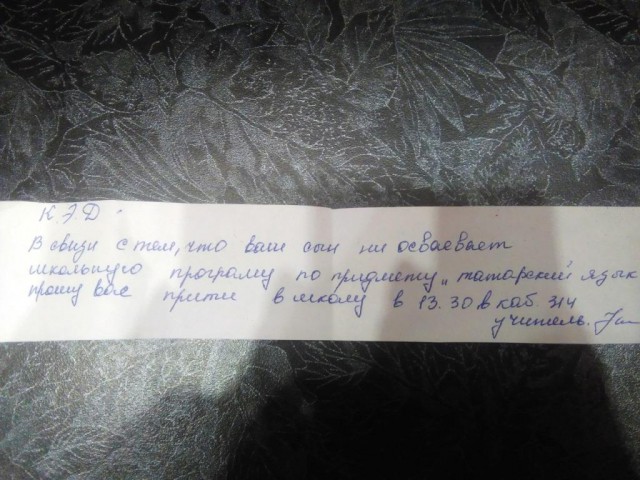 К Э Д.
В связи с тем, что ваш сын ни осваевает
школьную програму по придмету „татарский" язык
прошу вас прити в школу в 13.30 в каб. 314
учитель.